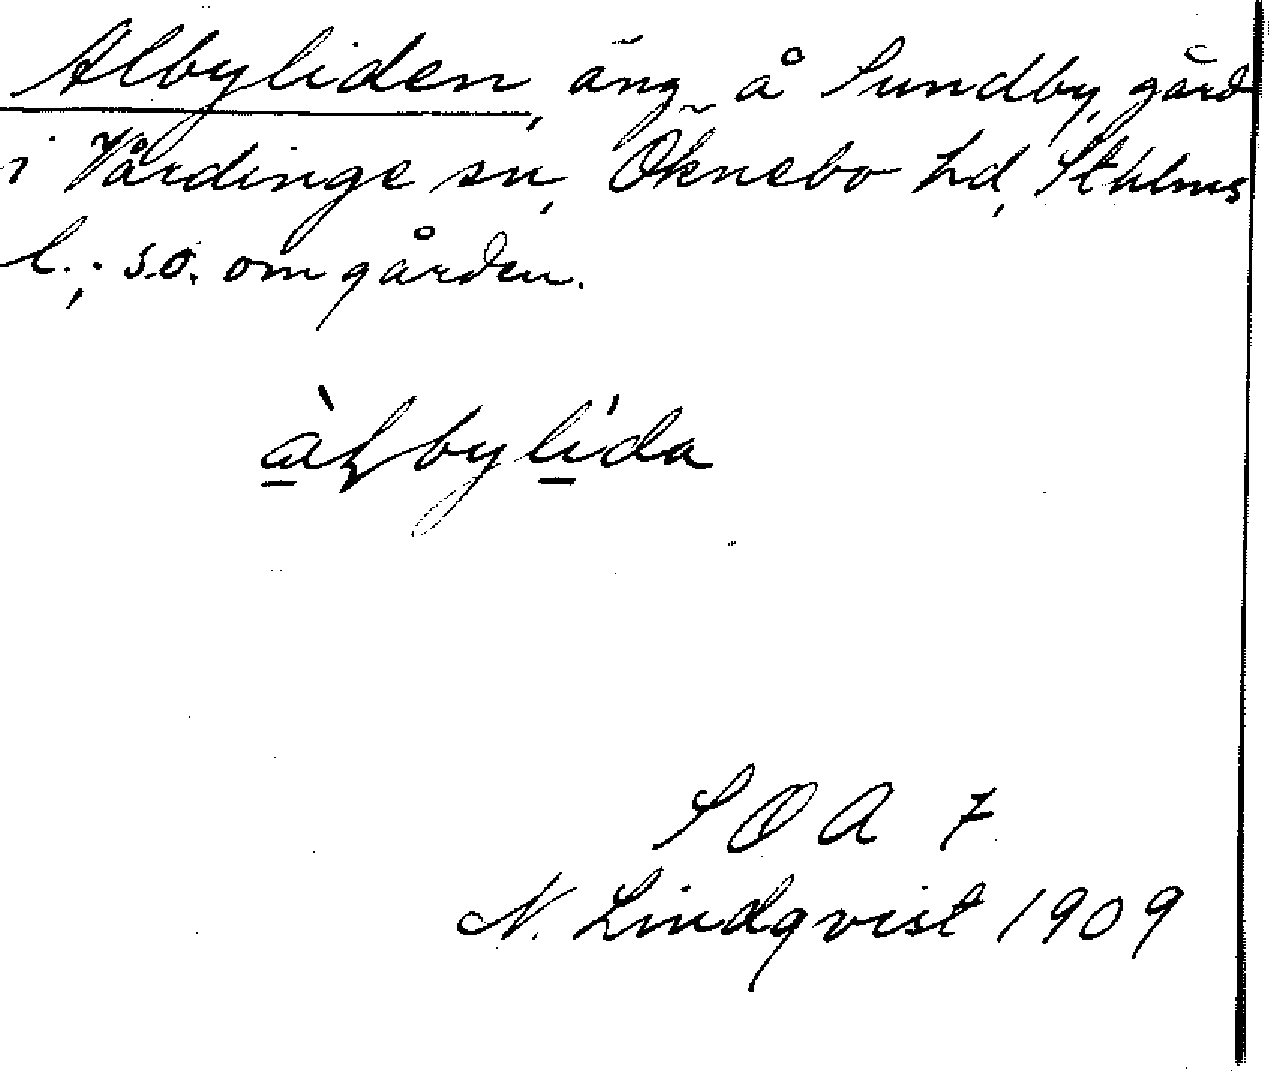 Albyliden, äng å Sundby gård
i Vårdinge sn, Öknebo hd, Sthlms
l.; s.o. om gården.
àlbylída
SOA 7
N. Lindqvist 1909